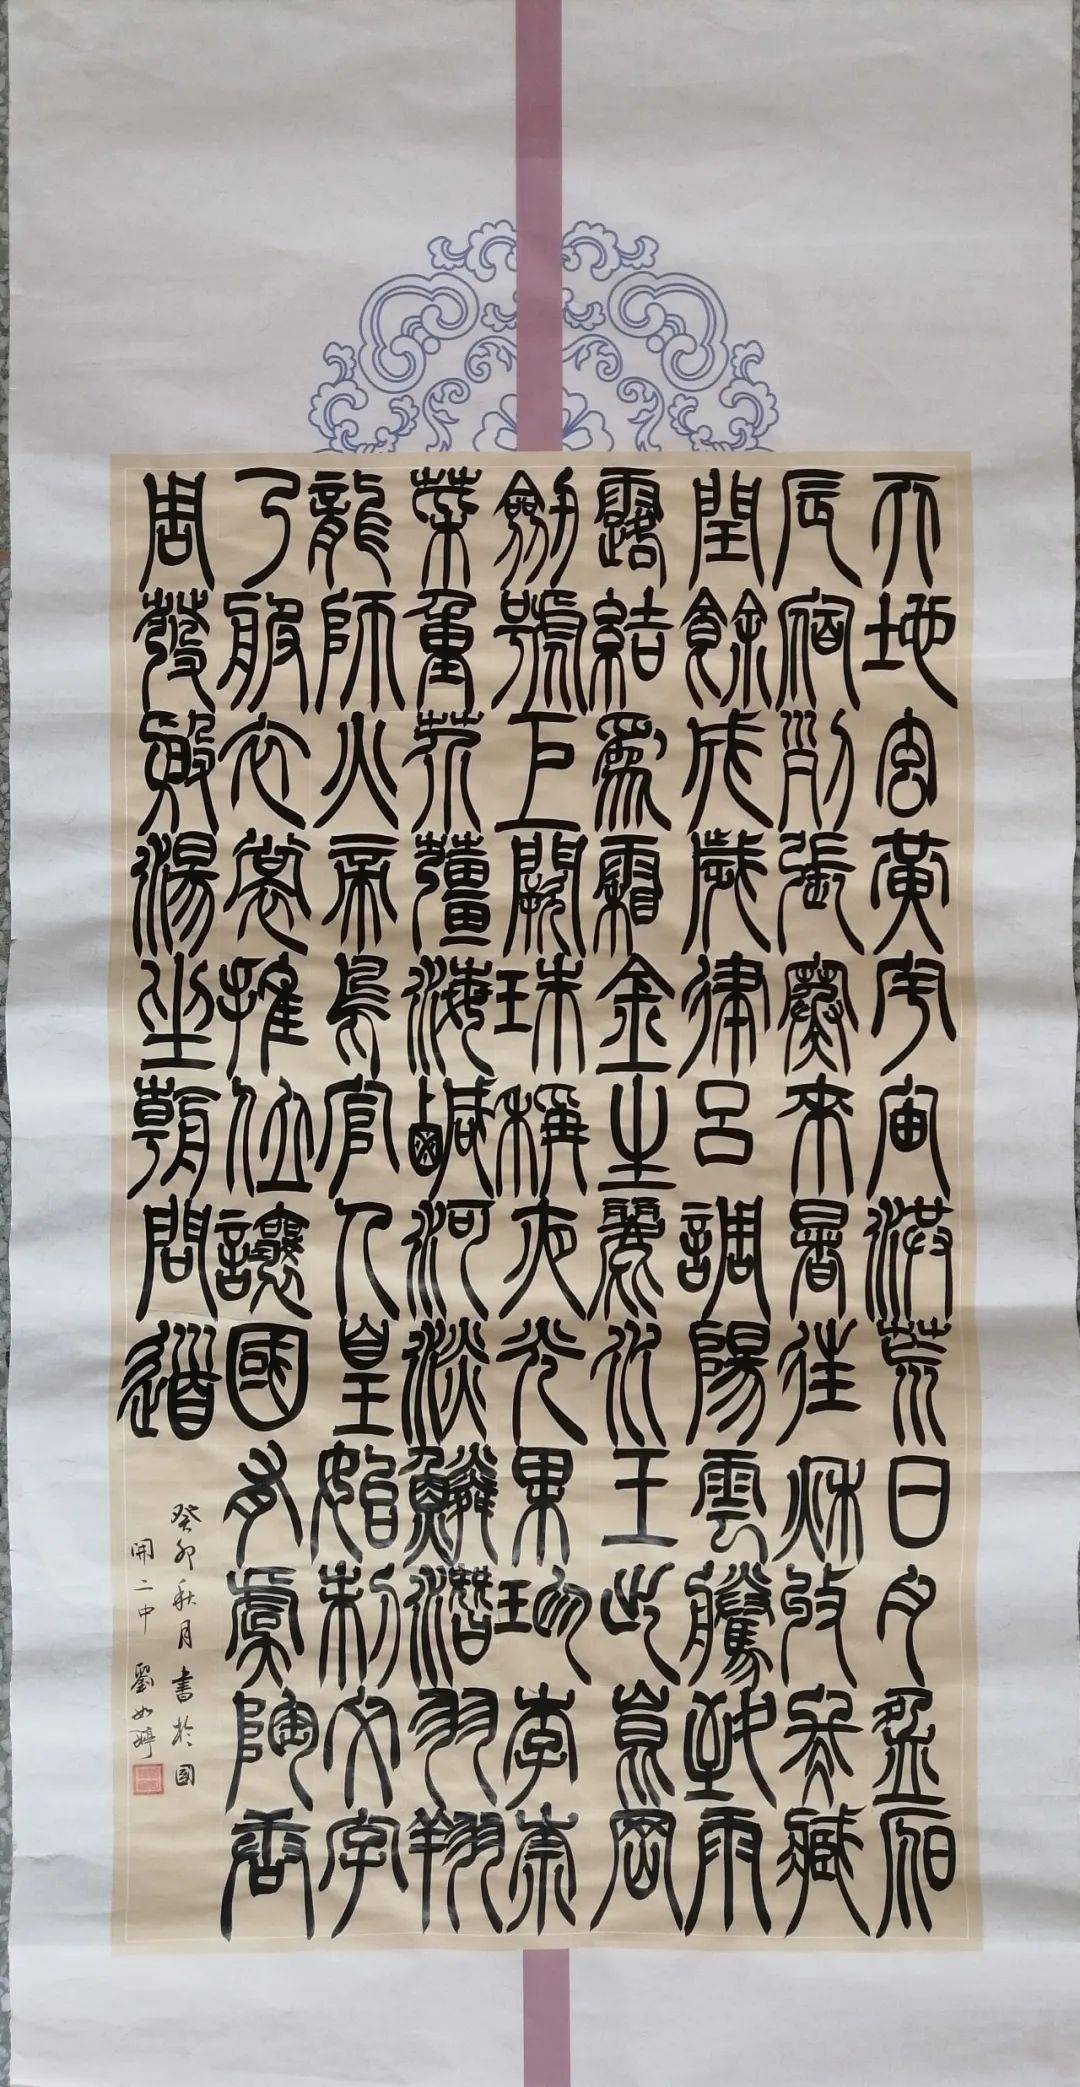 天地玄黃宇宙洪荒日月盈昃
辰宿列張寒來暑往秋收冬藏
閏餘成歲律呂調陽雲騰致雨
露結爲霜金生麗水玉出崑岡
劒號巨闕珠稱夜光果珍李柰
菜重芥薑海鹹河淡鱗潛羽翔
龍師火帝鳥官人皇始制文字
乃服衣裳推位讓國有虞陶唐
周發殷湯坐朝問道
癸卯秋月書於國
開二中 劉如婷